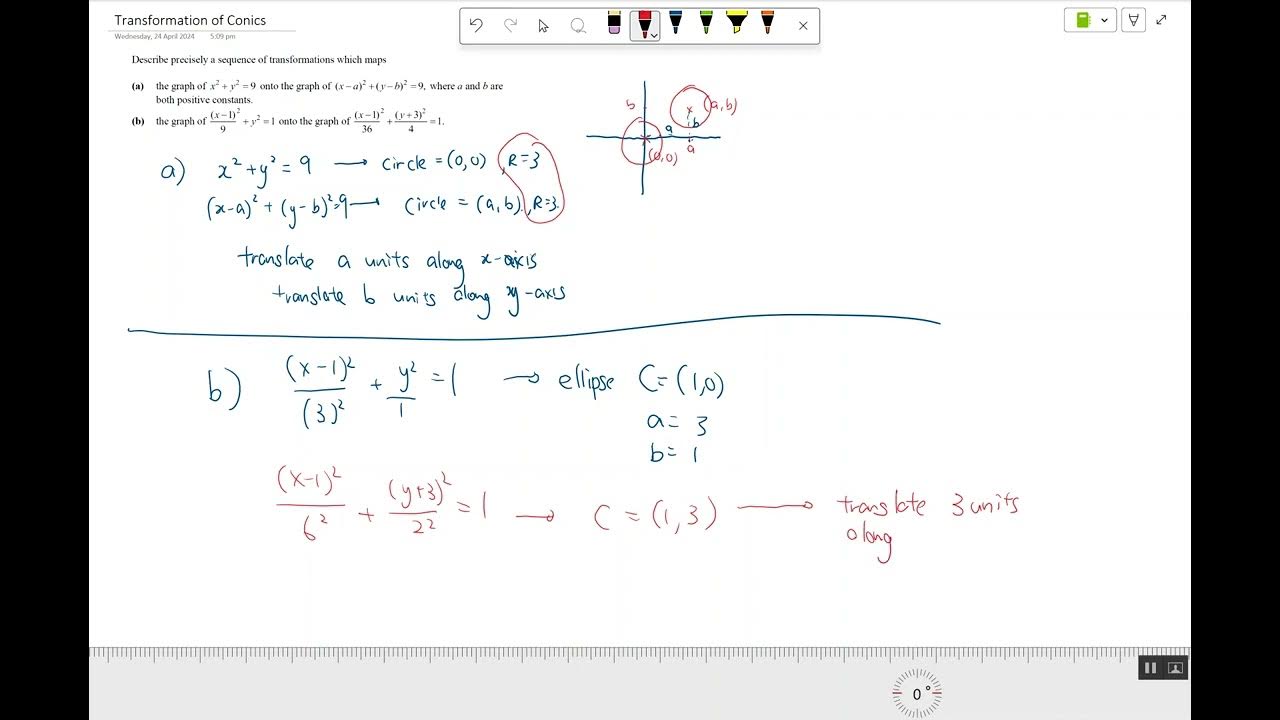 Transformation of Conics
Wednesday, 24 April 2024 5:09 pm
Describe precisely a sequence of transformations which maps
(a) the graph of x² + y² = 9 onto the graph of (x−a)² + (y−b)² = 9, where a and b are
both positive constants.
(b) the graph of (x−1)²/9 + y² = 1 onto the graph of (x−1)²/36 + (y+3)²/4 = 1.
b
(a,b)
b
a
(0,0)
a
a) x² + y² = 9 → circle = (0,0), R=3
(x-a)² + (y-b)² = 9 → circle = (a,b), R=3
translate a units along x-axis
translate b units along y-axis
b) (x-1)²/(3)² + y²/1 = 1 → ellipse C=(1,0)
a= 3
b= 1
(x-1)²/6² + (y+3)²/2² = 1 → C = (1,3) → translate 3 units
along
0°